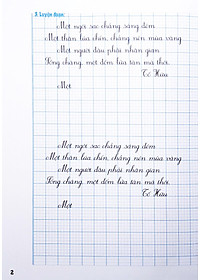 Luyện đoạn:
Một ngôi sao chẳng sáng đêm
Một thân lúa chín, chẳng nên mùa vàng
Một người đâu phải nhân gian
Sống chăng, một đốm lửa tàn mà thôi.
Tố Hữu
Một
Một ngôi sao chẳng sáng đêm
Một thân lúa chín, chẳng nên mùa vàng
Một người đâu phải nhân gian
Sống chăng, một đốm lửa tàn mà thôi.
Tố Hữu
Một
2